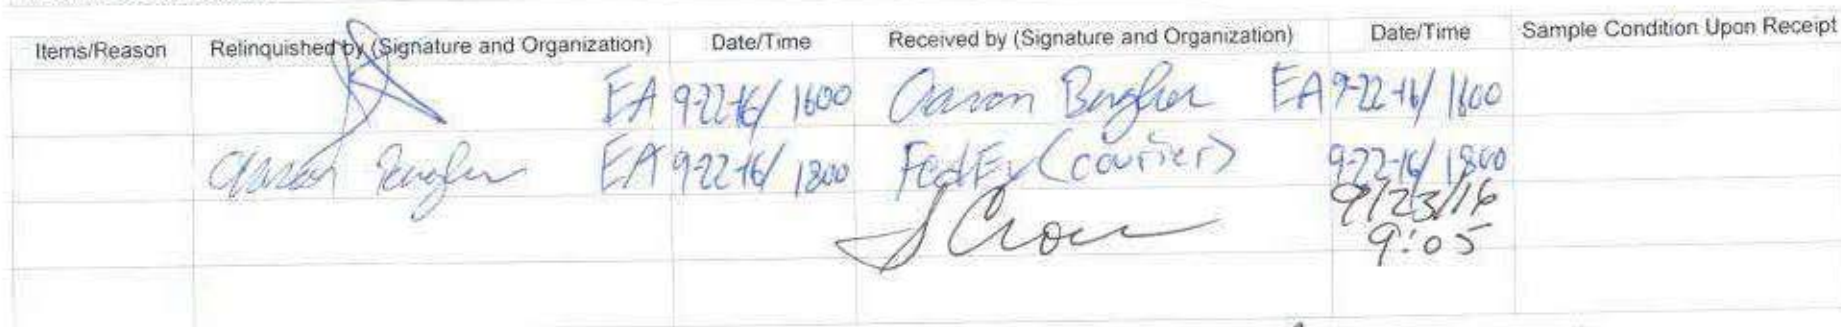 Items/Reason Relinquished by (Signature and Organization) Date/Time Received by (Signature and Organization) Date/Time Sample Condition Upon Receipt
EA 9-22-16/ 1600 Aaron EA 9-22-16/ 1600
Aaron EA 9-22-16/ 1800 FedEx (courier) 9-22-16/ 1800
9/23/16
9:05